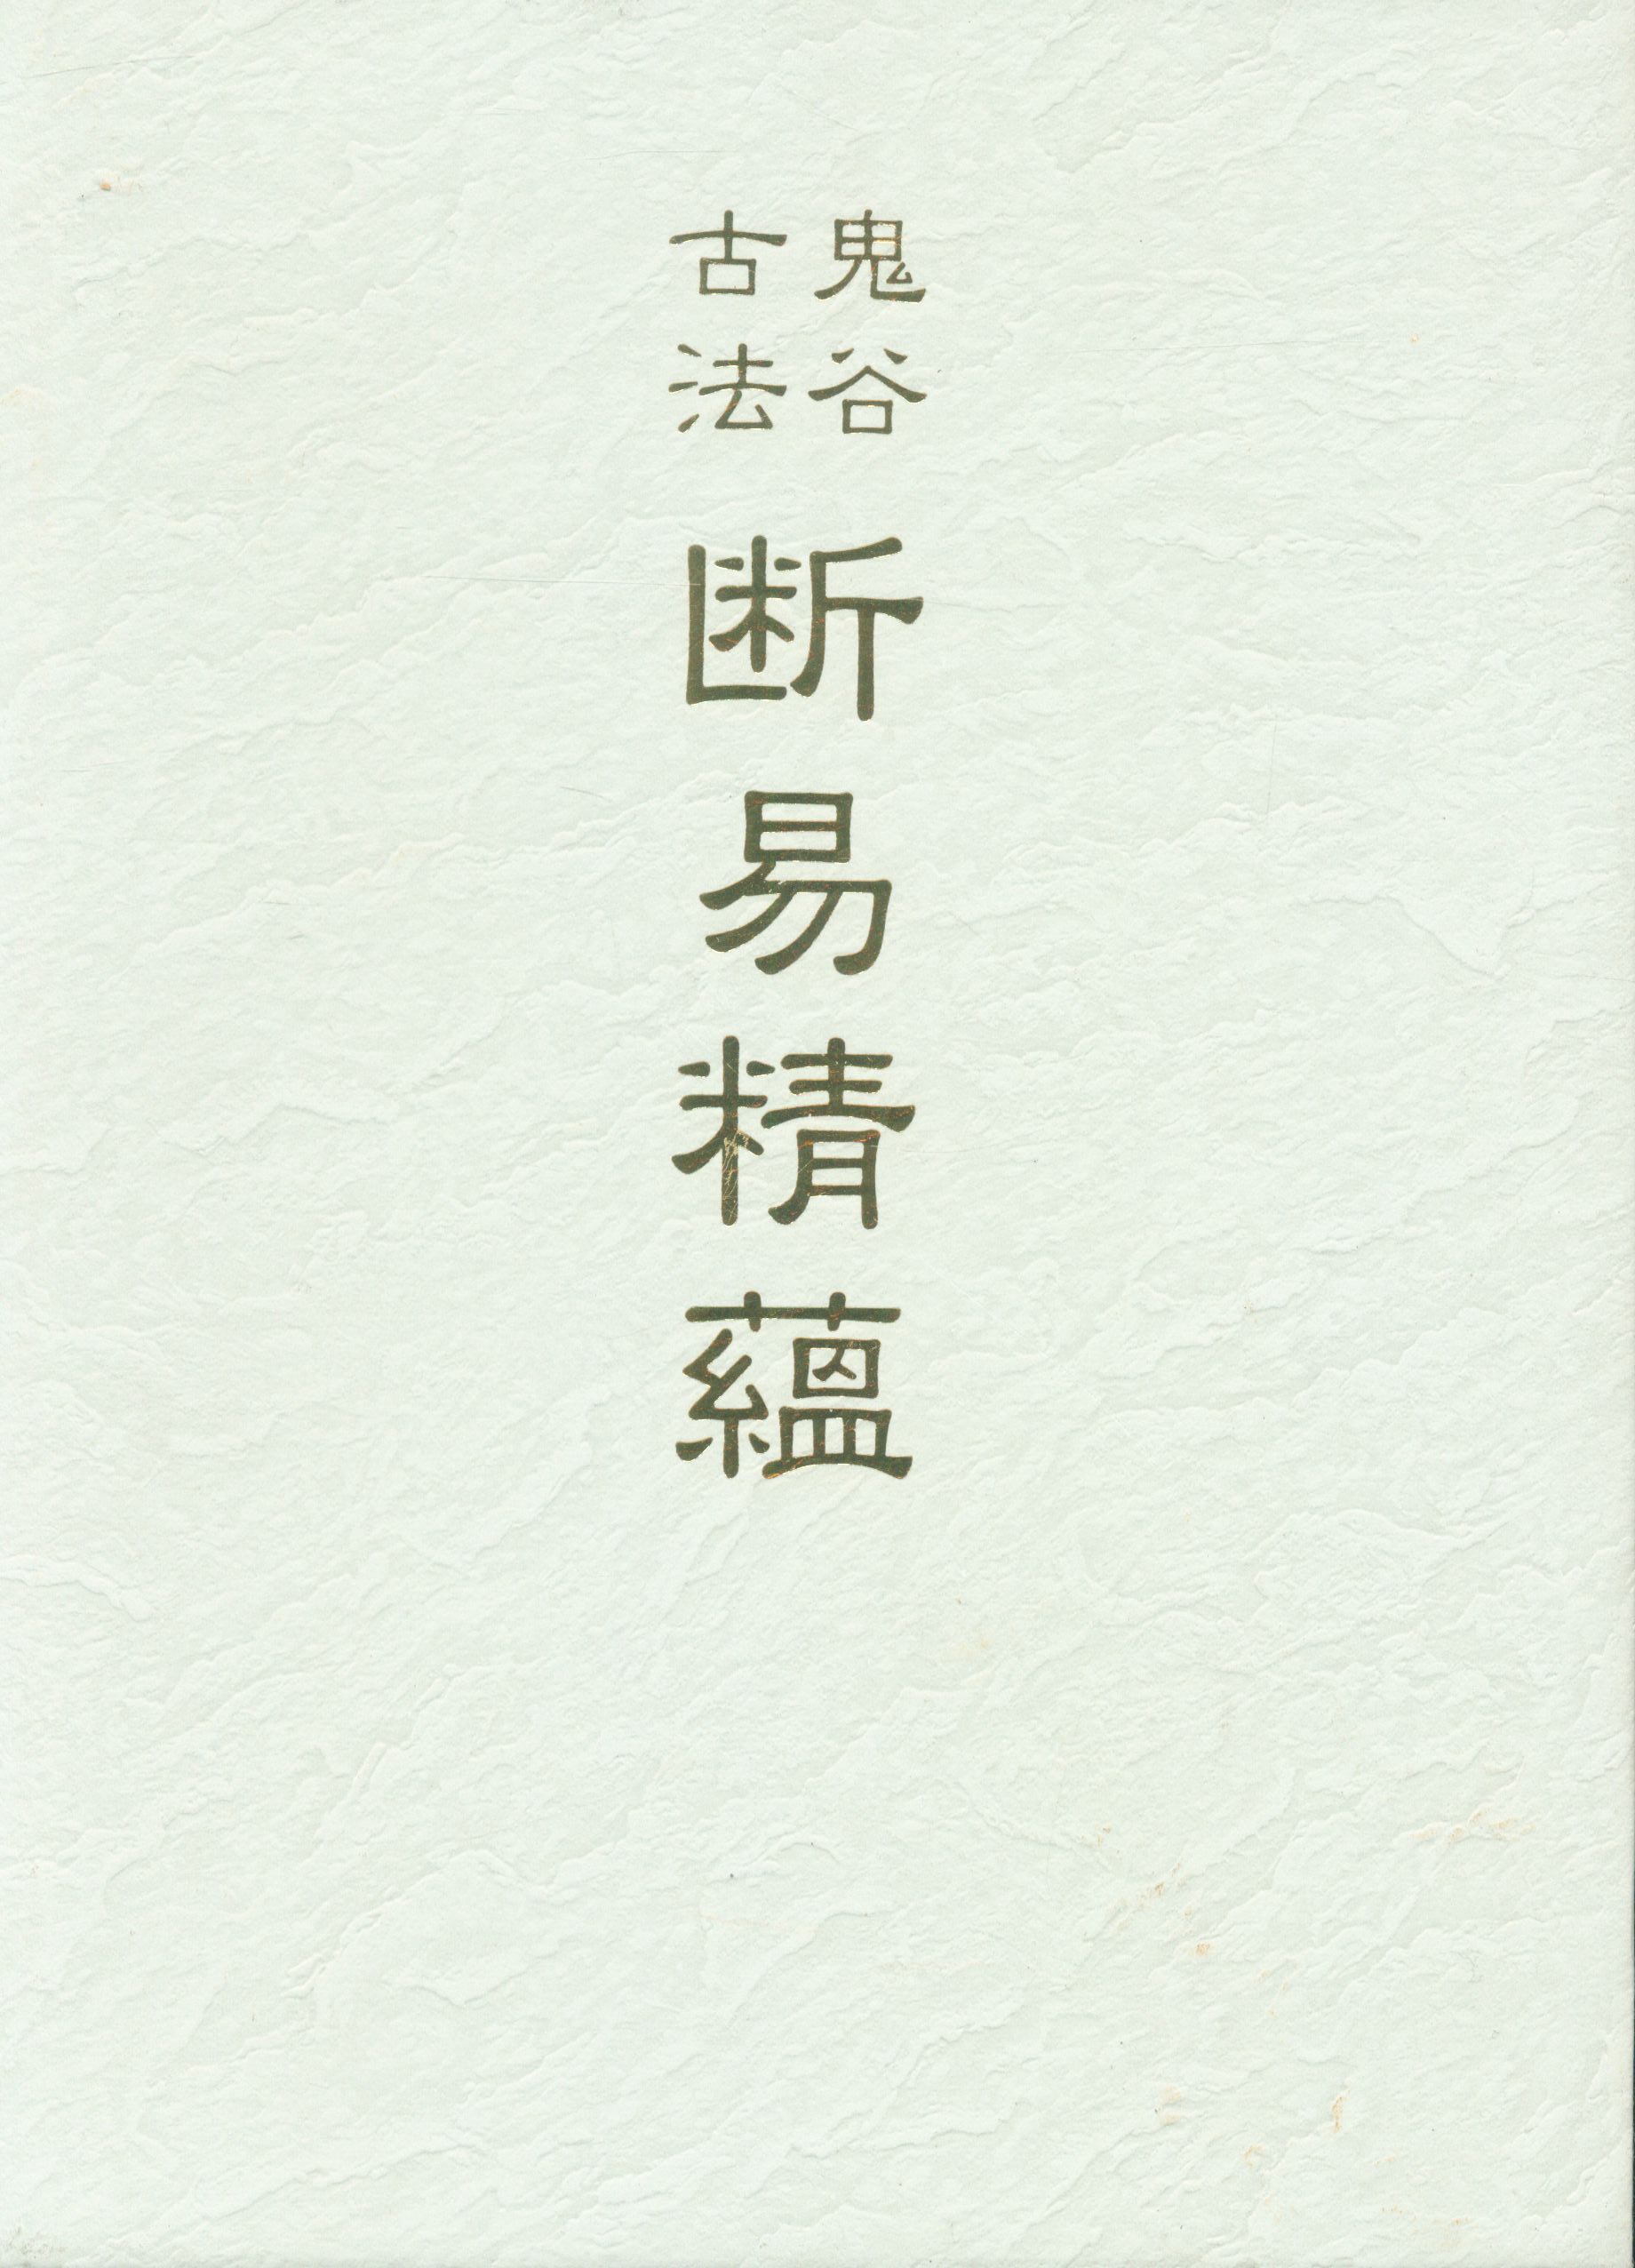 鬼谷
古法
断易精蘊